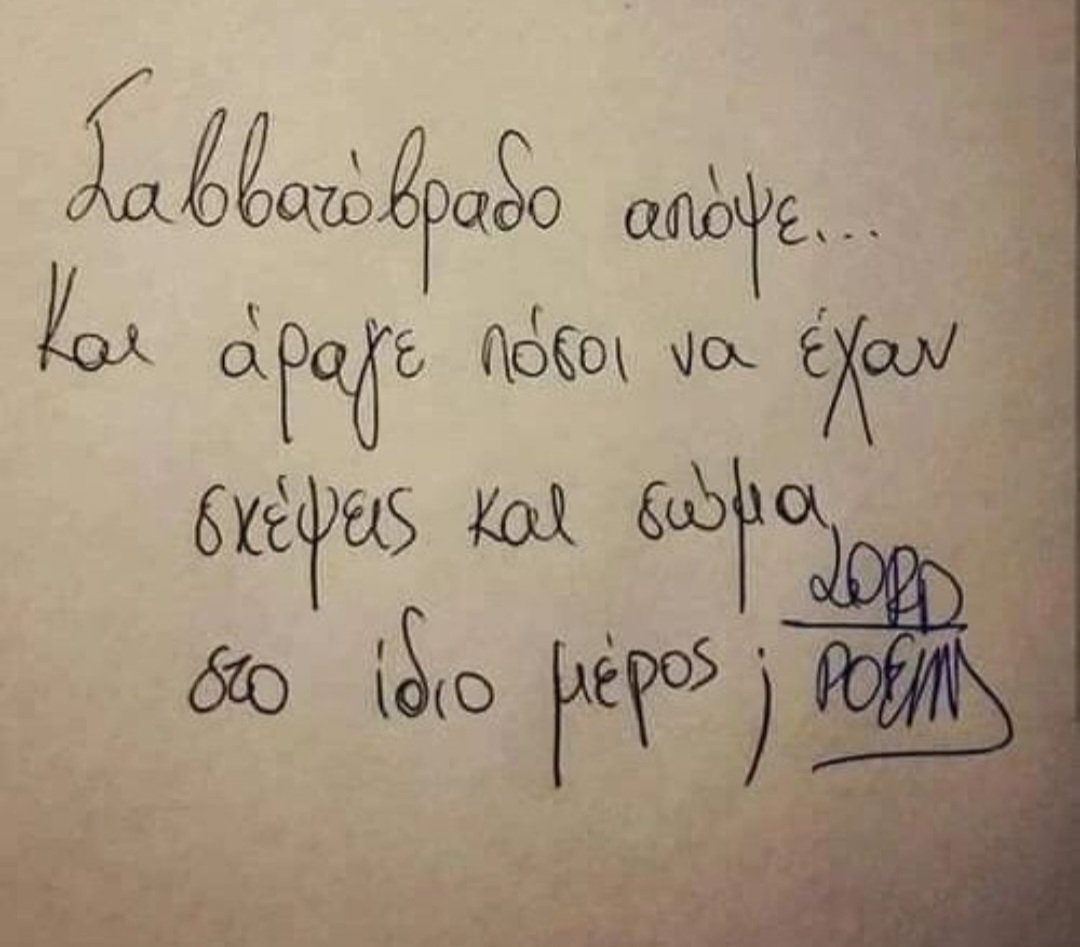 Σαββατόβραδο απόψε...
Και άραγε πόσοι να έχαν
σκέψεις και σώμα
στο ίδιο μέρος ;
LORD
POEM